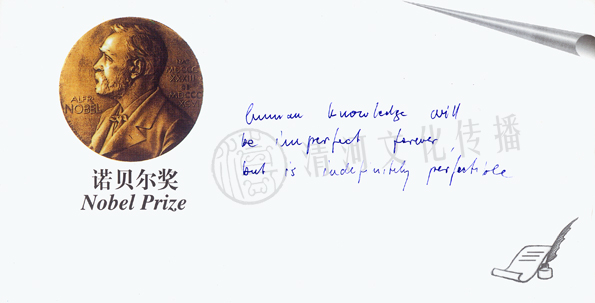 ALFR.
NOBEL
诺贝尔奖
Nobel Prize
human knowledge will
be imperfect forever,
but is indefinitely perfectible
清河文化传播